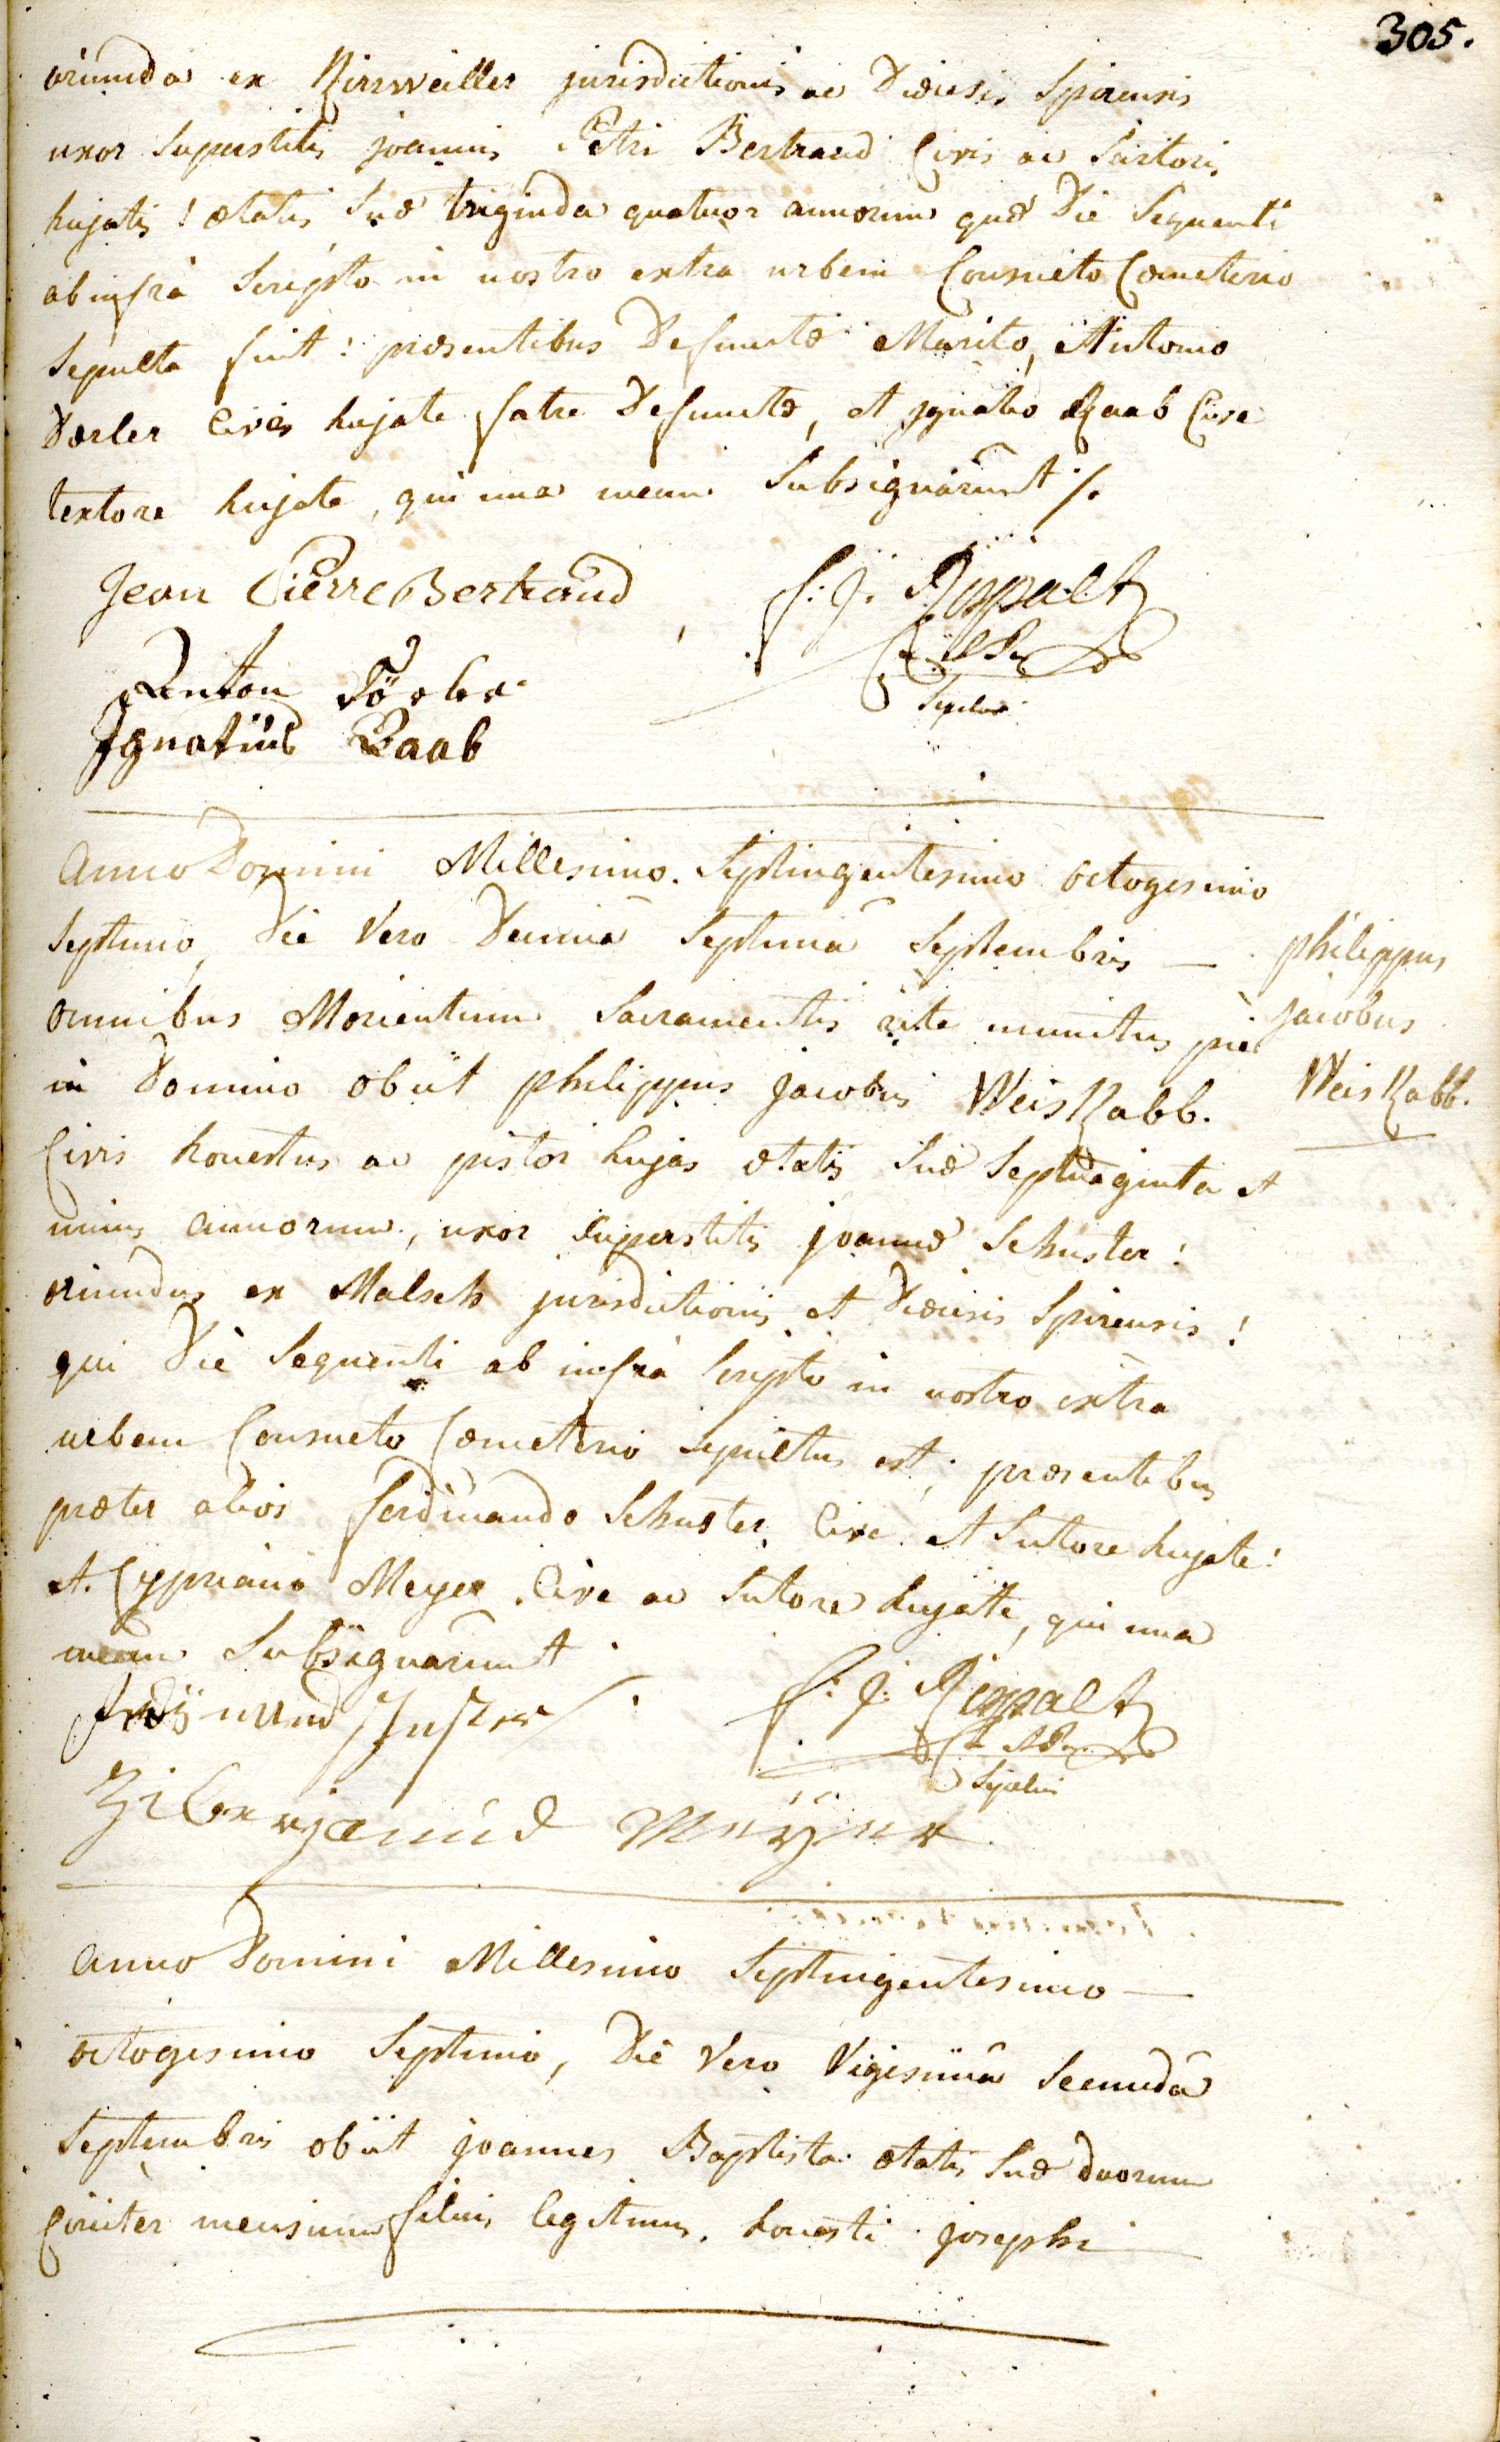 305.
oriunda ex Kirrweiller jurisdictionis ac Diœcesis Spirensis
uxor superstitis joannis Petri Bertrand Civis ac Sartoris
hujatis! ætatis suæ triginda quatuor annorum quæ Die Sequenti
ab infrà scripto in nostro extra urbem Consueto Cœmeterio
Sepulta fuit: præsentibus Defunctæ Marito, Antonio
Dœrler Cive hujate fratre Defunctæ, et jgnatio Raab Cive
textore hujate, qui una mecum Subsignârunt ./.
Jean Pierre Bertrand
f: j: Rippalt
Anton Dörler
Sepeliens
Ignatius Raab
Anno Domini Millesimo. Septingentesimo octogesimo
Septimo, Die Vero Decimâ Septimâ Septembris —
omnibus Morientium Sacramentis rite munitus piè
in Domino obiit philippus jacobus WeisKabb.
philippus
jacobus
WeisKabb.
Civis honestus ac pistor hujas ætatis suæ Septuaginta et
unius annorum, uxor superstitis joannæ Schuster!
oriundus ex Malsch jurisdictionis et Diœcesis Spirensis!
qui Die Sequenti ab infrà scripto in nostro extra
urbem Consueto Cœmeterio Sepultus est; præsentibus
præter alios ferdinando Schuster Cive et Sutore hujate!
et Cypriano Meyer Cive ac Sutore hujate, qui una
mecum Subsignarunt
f: j: Rippalt
Sepeliens
Meÿer
Anno Domini Millesimo Septingentesimo —
octogesimo Septimo, Die Vero Vigesimâ Secundâ
Septembris obiit joannes Baptista ætatis suæ duorum
Circiter mensium filius legitimus honesti josephi